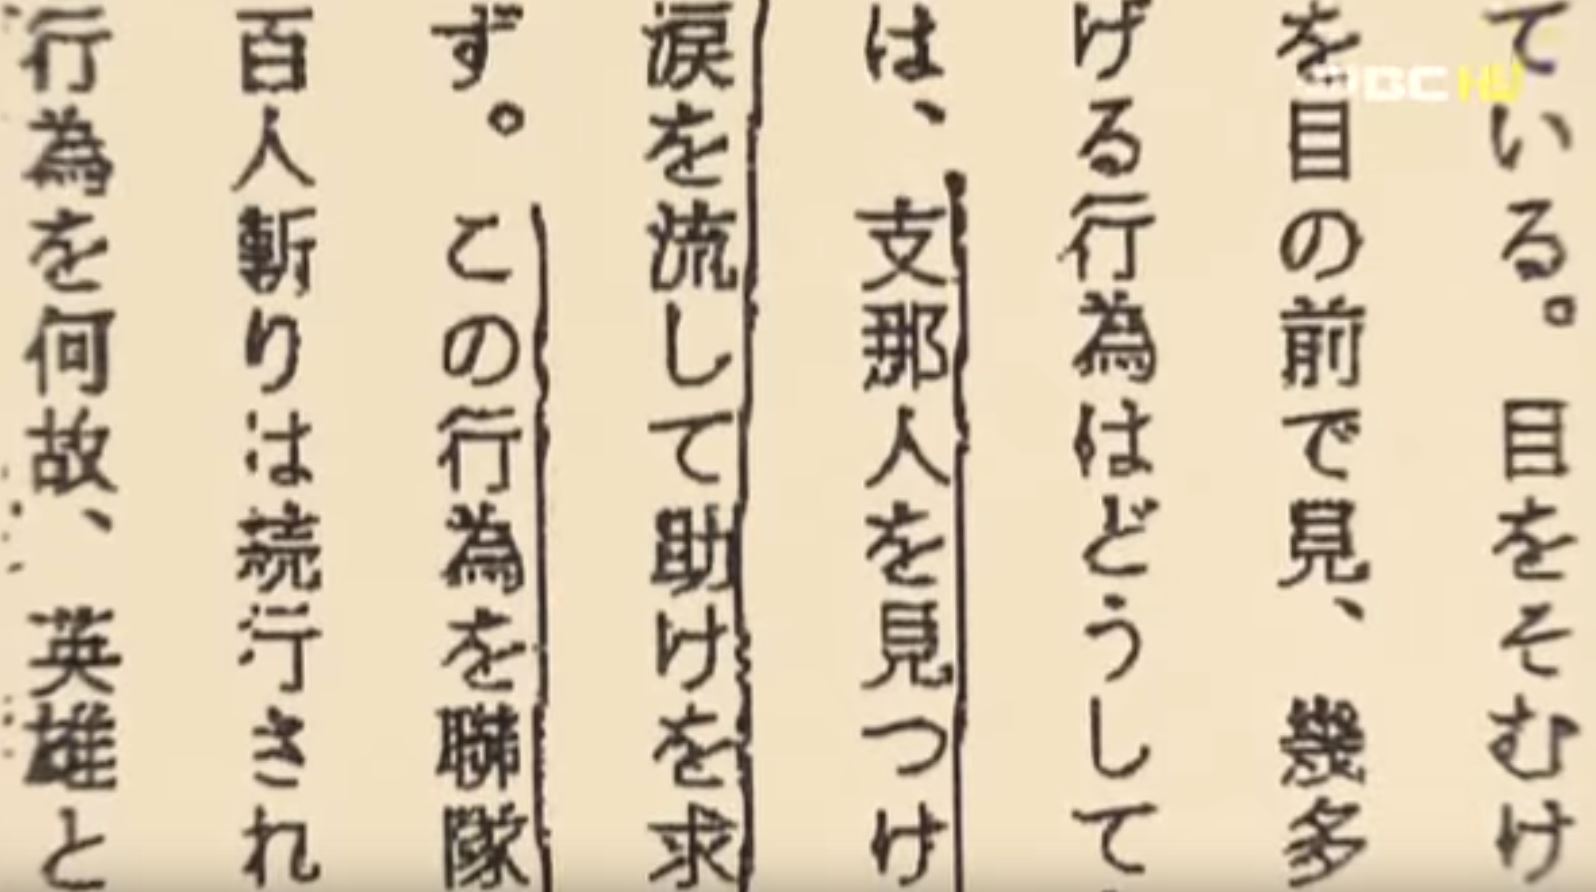 ている。目をそむけ
を目の前で見、幾多
げる行為はどうして
は、支那人を見つけ
涙を流して助けを求
ず。この行為を聯隊
百人斬りは続行され
行為を何故、英雄と
MBC HD